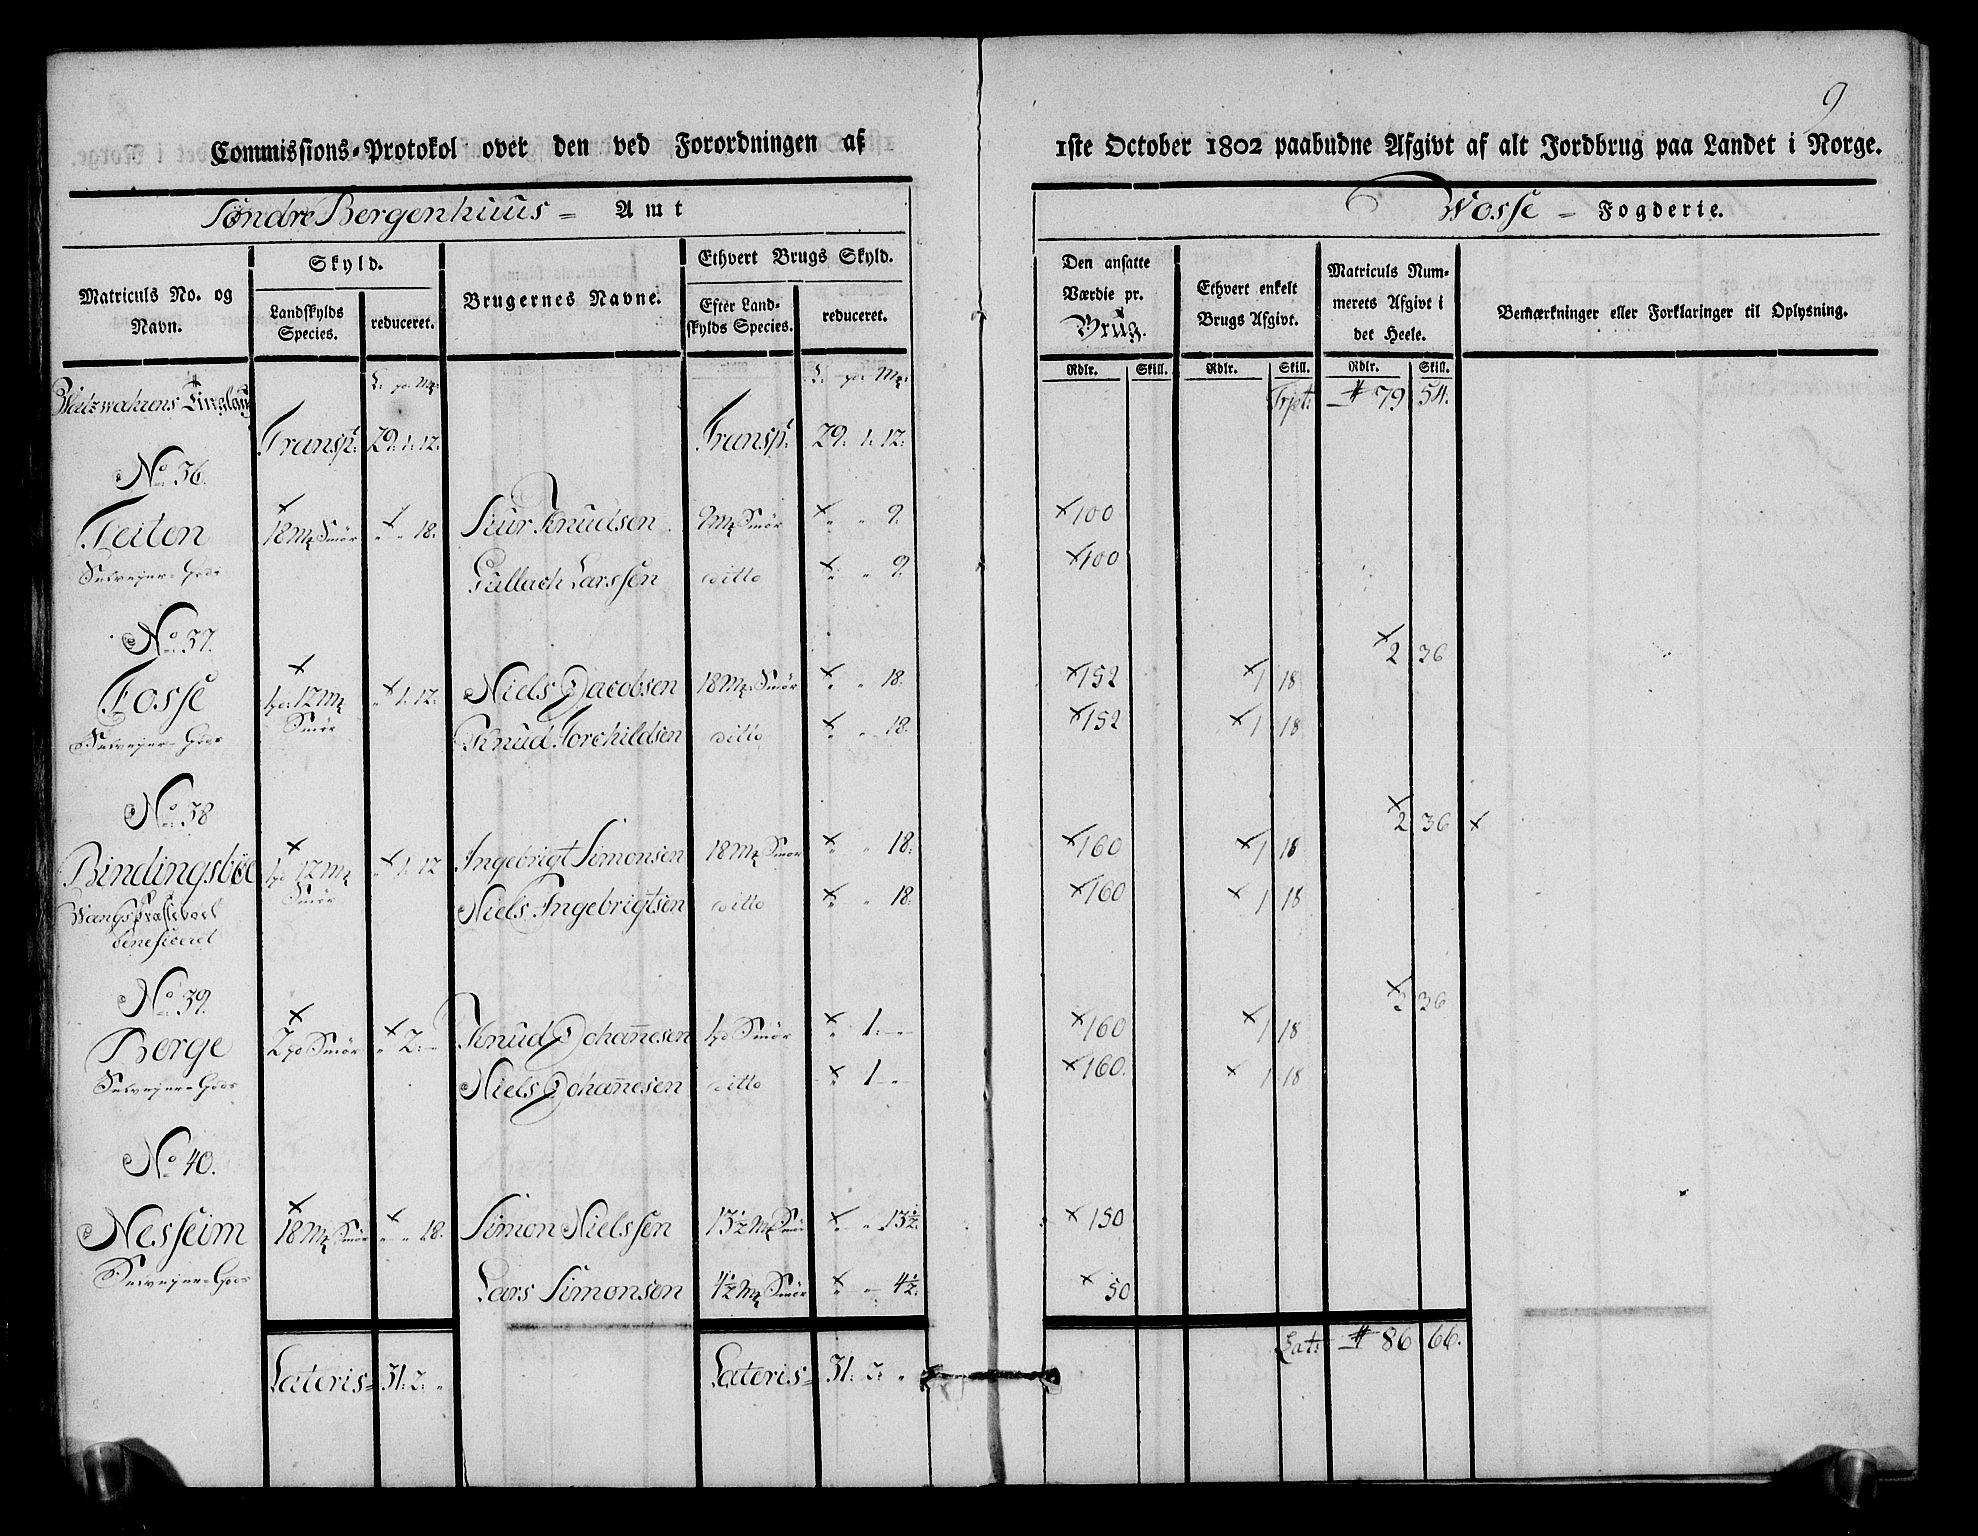 9
Commissions-Protokol over den ved Forordningen af 1ste October 1802 paabudne Afgivt af alt Jordbrug paa Landet i Norge.
Söndre Bergenhuus = Amt
Wosse = Fogderie.
Matriculs No. og Navn.
Skyld.
Landskylds Species.
reduceret.
Brugernes Navne.
Ethvert Brugs Skyld.
Efter Landskylds Species.
reduceret.
Den ansatte Værdie pr. Brug.
Ethvert enkelt Brugs Afgivt.
Matriculs Nummerets Afgivt i det Heele.
Bemærkninger eller Forklaringer til Oplysning.
Rdlr. Skill. Rdlr. Skill. Rdlr. Skill.
Tinglaug
Trpt: 79 54.
Transpt: 29: 1: 12: Transpt: 29: 1: 12:
No 36.
Teiten 18 mk Smör " " 18. Siur Knudsen 9 mk Smör " " 9. 100
Selvejer-Gods Gullach Larssen ditto " " 9. 100
No 37.
2 36
Fosse 1 pd 12 mk Smör " 1: 12: Niels Jacobsen 18 mk Smör " " 18. 152 1 18
Selvejer-Gods Knud Torchildsen ditto " " 18. 152 1 18
No 38
2 36
Bindingsböe 1 pd 12 mk Smör " 1: 12 Ingebrigt Simonsen 18 mk Smör " " 18: 160 1 18
Wangs Præstebol Niels Ingebrigtsen ditto " " 18. 160 1 18
beneficeret
No 39.
2 36
Berge 2 pd Smör " 2: — Knud Johannesen 1 pd Smör " 1: — 160 1 18
Selvejer-Gods Niels Johannesen ditto " 1 — 160. 1 18
No 40.
Nesseim 18 mk Smör " " 18. Simon Nielssen 13½ mk Smör " " 13½. 150
Selvejer-Gods Lars Simonsen 4½ mk Smör " " 4½. 50
Lat: 86 66.
Lateris = 31: 2: " Lateris = 31: 2: "